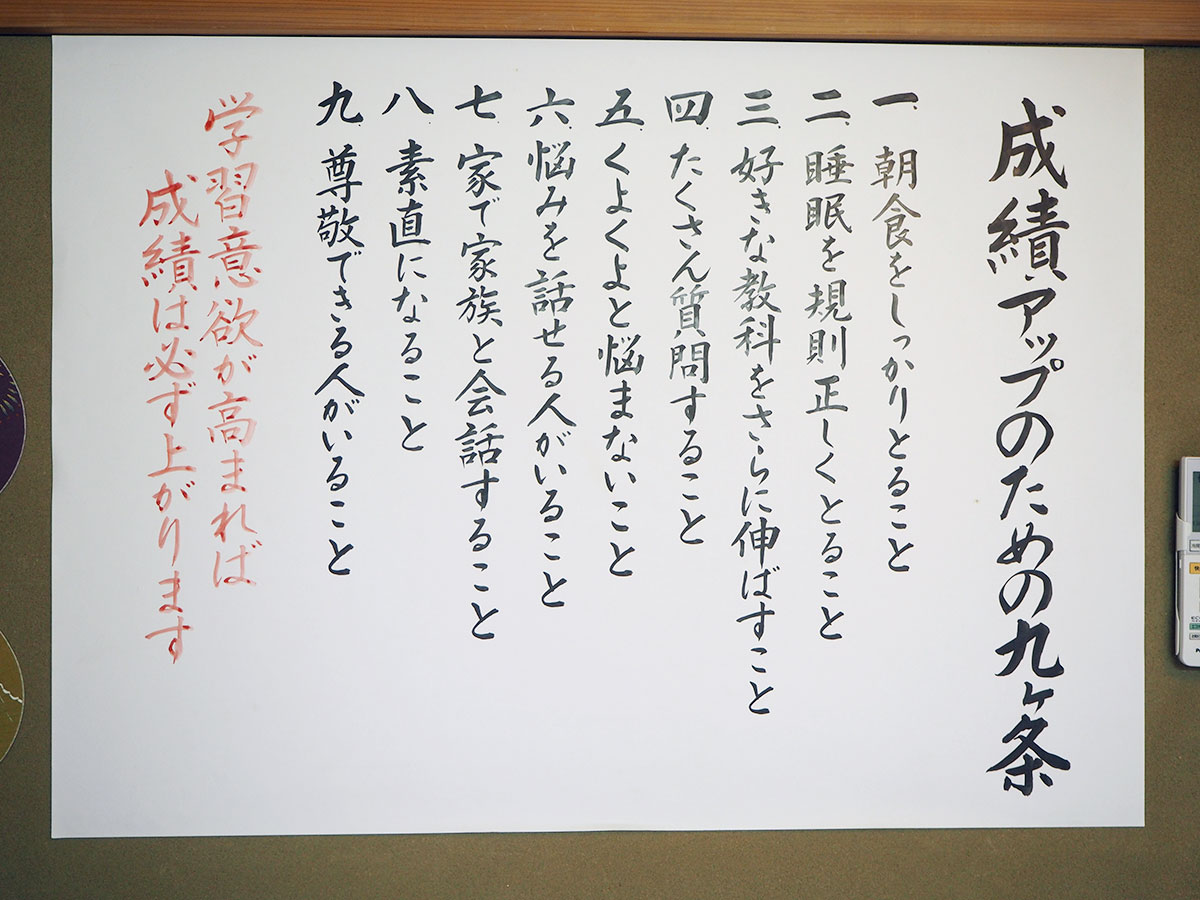 成績アップのための九ヶ条
一、朝食をしっかりとること
二、睡眠を規則正しくとること
三、好きな教科をさらに伸ばすこと
四、たくさん質問すること
五、くよくよと悩まないこと
六、悩みを話せる人がいること
七、家で家族と会話すること
八、素直になること
九、尊敬できる人がいること
学習意欲が高まれば
成績は必ず上がります